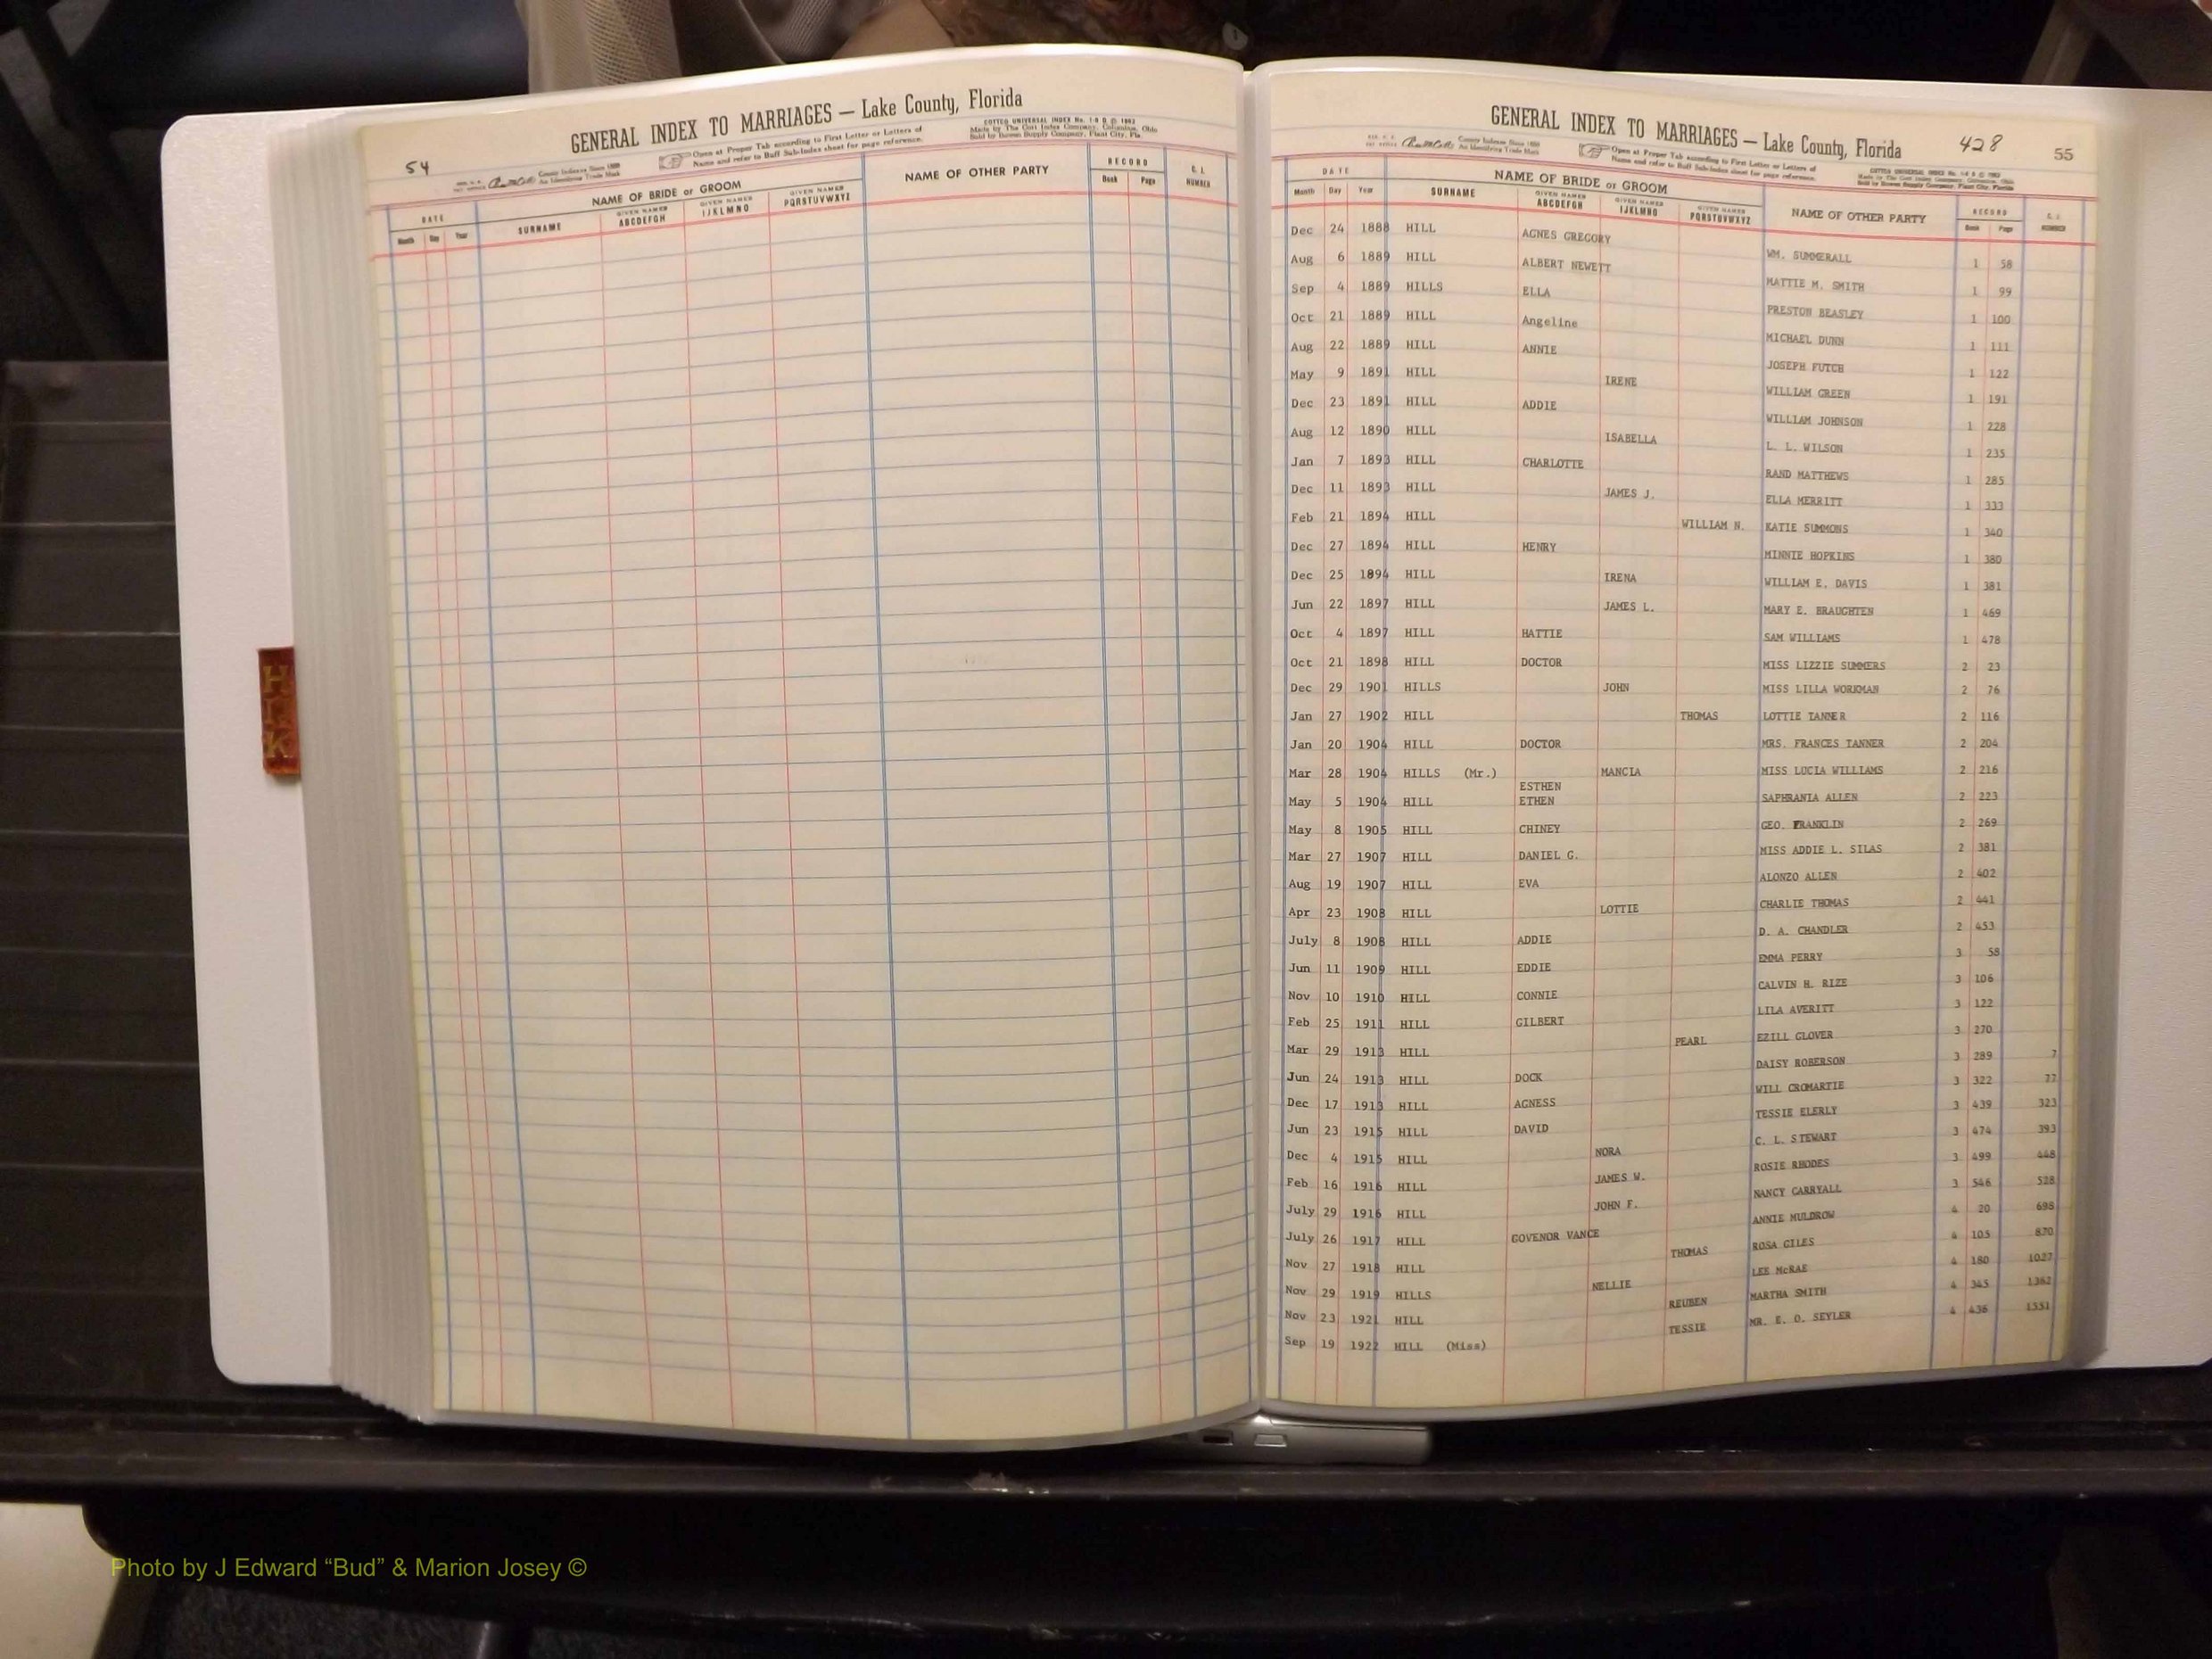 54
GENERAL INDEX TO MARRIAGES — Lake County, Florida
County Indexes Since 1888
An Identifying Trade Mark
Open at Proper Tab according to First Letter or Letters of
Name and refer to Buff Sub-Index sheet for page reference.
Made by The Cott Index Company, Columbus, Ohio
Sold by Bowen Supply Company, Plant City, Fla.
DATE NAME OF BRIDE or GROOM NAME OF OTHER PARTY RECORD
Month Day Year SURNAME GIVEN NAMES ABCDEFGH GIVEN NAMES IJKLMNO GIVEN NAMES PQRSTUVWXYZ Book Page NUMBER
GENERAL INDEX TO MARRIAGES — Lake County, Florida 428 55
County Indexes Since 1888
An Identifying Trade Mark
Open at Proper Tab according to First Letter or Letters of
Name and refer to Buff Sub-Index sheet for page reference.
DATE NAME OF BRIDE or GROOM NAME OF OTHER PARTY RECORD
Month Day Year SURNAME GIVEN NAMES ABCDEFGH GIVEN NAMES IJKLMNO GIVEN NAMES PQRSTUVWXYZ Book Page NUMBER
Dec 24 1888 HILL AGNES GREGORY WM. SUMMERALL 1 58
Aug 6 1889 HILL ALBERT NEWETT MATTIE M. SMITH 1 99
Sep 4 1889 HILLS ELLA PRESTON BEASLEY 1 100
Oct 21 1889 HILL Angeline MICHAEL DUNN 1 111
Aug 22 1889 HILL ANNIE JOSEPH FUTCH 1 122
May 9 1891 HILL IRENE WILLIAM GREEN 1 191
Dec 23 1891 HILL ADDIE WILLIAM JOHNSON 1 228
Aug 12 1890 HILL ISABELLA L. L. WILSON 1 235
Jan 7 1893 HILL CHARLOTTE RAND MATTHEWS 1 285
Dec 11 1893 HILL JAMES J. ELLA MERRITT 1 333
Feb 21 1894 HILL WILLIAM N. KATIE SUMMONS 1 340
Dec 27 1894 HILL HENRY MINNIE HOPKINS 1 380
Dec 25 1894 HILL IRENA WILLIAM E. DAVIS 1 381
Jun 22 1897 HILL JAMES L. MARY E. BRAUGHTEN 1 469
Oct 4 1897 HILL HATTIE SAM WILLIAMS 1 478
Oct 21 1898 HILL DOCTOR MISS LIZZIE SUMMERS 2 23
Dec 29 1901 HILLS JOHN MISS LILLA WORKMAN 2 76
Jan 27 1902 HILL THOMAS LOTTIE TANNER 2 116
Jan 20 1904 HILL DOCTOR MRS. FRANCES TANNER 2 204
Mar 28 1904 HILLS (Mr.) MANCIA MISS LUCIA WILLIAMS 2 216
ESTHEN
May 5 1904 HILL ETHEN SAPHRANIA ALLEN 2 223
May 8 1905 HILL CHINEY GEO. FRANKLIN 2 269
Mar 27 1907 HILL DANIEL G. MISS ADDIE L. SILAS 2 381
Aug 19 1907 HILL EVA ALONZO ALLEN 2 402
Apr 23 1908 HILL LOTTIE CHARLIE THOMAS 2 441
July 8 1908 HILL ADDIE D. A. CHANDLER 2 453
Jun 11 1909 HILL EDDIE EMMA PERRY 3 58
Nov 10 1910 HILL CONNIE CALVIN H. RIZE 3 106
Feb 25 1911 HILL GILBERT LILA AVERITT 3 122
Mar 29 1913 HILL PEARL EZILL GLOVER 3 270
Jun 24 1913 HILL DOCK DAISY ROBERSON 3 289 7
Dec 17 1913 HILL AGNESS WILL CROMARTIE 3 322 77
Jun 23 1915 HILL DAVID TESSIE ELERLY 3 439 323
Dec 4 1915 HILL NORA C. L. STEWART 3 474 393
Feb 16 1916 HILL JAMES W. ROSIE RHODES 3 499 448
July 29 1916 HILL JOHN F. NANCY CARRYALL 3 546 528
July 26 1917 HILL GOVENOR VANCE ANNIE MULDROW 4 20 698
Nov 27 1918 HILL THOMAS ROSA GILES 4 103 870
Nov 29 1919 HILLS NELLIE LEE McRAE 4 180 1027
Nov 23 1921 HILL REUBEN MARTHA SMITH 4 345 1362
Sep 19 1922 HILL (Miss) TESSIE MR. E. O. SEYLER 4 436 1551
H
I
K
Photo by J Edward “Bud” & Marion Josey ©